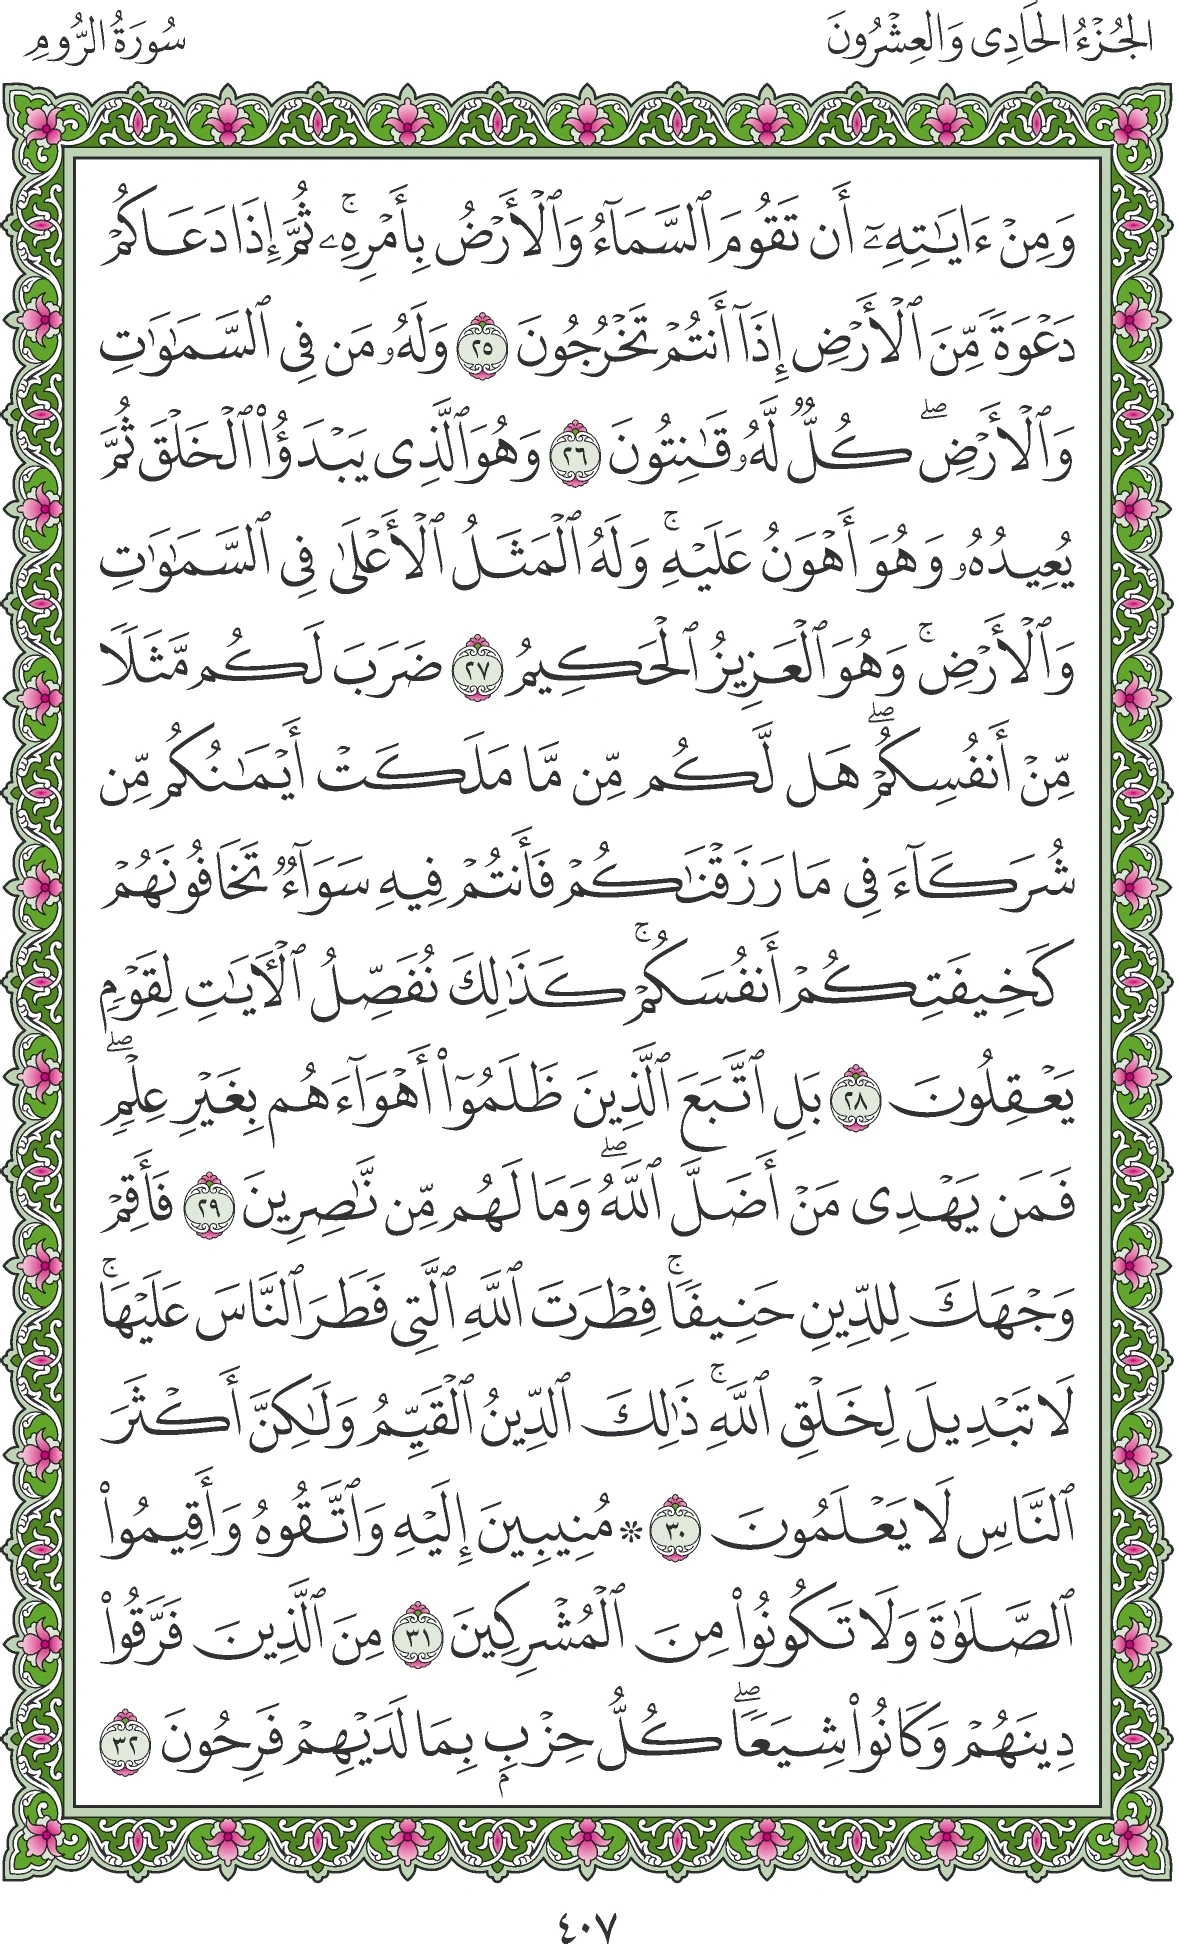 الجُزْءُ الحَادِى وَالعِشْرُونَ
سُورَةُ الرُّومِ
وَمِنْ ءَايَٰتِهِۦٓ أَن تَقُومَ ٱلسَّمَآءُ وَٱلْأَرْضُ بِأَمْرِهِۦۚ ثُمَّ إِذَا دَعَاكُمْ
دَعْوَةً مِّنَ ٱلْأَرْضِ إِذَآ أَنتُمْ تَخْرُجُونَ ٢٥ وَلَهُۥ مَن فِى ٱلسَّمَٰوَٰتِ
وَٱلْأَرْضِۖ كُلٌّ لَّهُۥ قَٰنِتُونَ ٢٦ وَهُوَ ٱلَّذِى يَبْدَؤُا۟ ٱلْخَلْقَ ثُمَّ
يُعِيدُهُۥ وَهُوَ أَهْوَنُ عَلَيْهِۚ وَلَهُ ٱلْمَثَلُ ٱلْأَعْلَىٰ فِى ٱلسَّمَٰوَٰتِ
وَٱلْأَرْضِۚ وَهُوَ ٱلْعَزِيزُ ٱلْحَكِيمُ ٢٧ ضَرَبَ لَكُم مَّثَلًا
مِّنْ أَنفُسِكُمْۖ هَل لَّكُم مِّن مَّا مَلَكَتْ أَيْمَٰنُكُم مِّن
شُرَكَآءَ فِى مَا رَزَقْنَٰكُمْ فَأَنتُمْ فِيهِ سَوَآءٌ تَخَافُونَهُمْ
كَخِيفَتِكُمْ أَنفُسَكُمْۚ كَذَٰلِكَ نُفَصِّلُ ٱلْءَايَٰتِ لِقَوْمٍ
يَعْقِلُونَ ٢٨ بَلِ ٱتَّبَعَ ٱلَّذِينَ ظَلَمُوٓا۟ أَهْوَآءَهُم بِغَيْرِ عِلْمٍۖ
فَمَن يَهْدِى مَنْ أَضَلَّ ٱللَّهُۖ وَمَا لَهُم مِّن نَّٰصِرِينَ ٢٩ فَأَقِمْ
وَجْهَكَ لِلدِّينِ حَنِيفًاۚ فِطْرَتَ ٱللَّهِ ٱلَّتِى فَطَرَ ٱلنَّاسَ عَلَيْهَاۚ
لَا تَبْدِيلَ لِخَلْقِ ٱللَّهِۚ ذَٰلِكَ ٱلدِّينُ ٱلْقَيِّمُ وَلَٰكِنَّ أَكْثَرَ
ٱلنَّاسِ لَا يَعْلَمُونَ ٣٠ ۞ مُنِيبِينَ إِلَيْهِ وَٱتَّقُوهُ وَأَقِيمُوا۟
ٱلصَّلَوٰةَ وَلَا تَكُونُوا۟ مِنَ ٱلْمُشْرِكِينَ ٣١ مِنَ ٱلَّذِينَ فَرَّقُوا۟
دِينَهُمْ وَكَانُوا۟ شِيَعًاۖ كُلُّ حِزْبٍۭ بِمَا لَدَيْهِمْ فَرِحُونَ ٣٢
٤٠٧